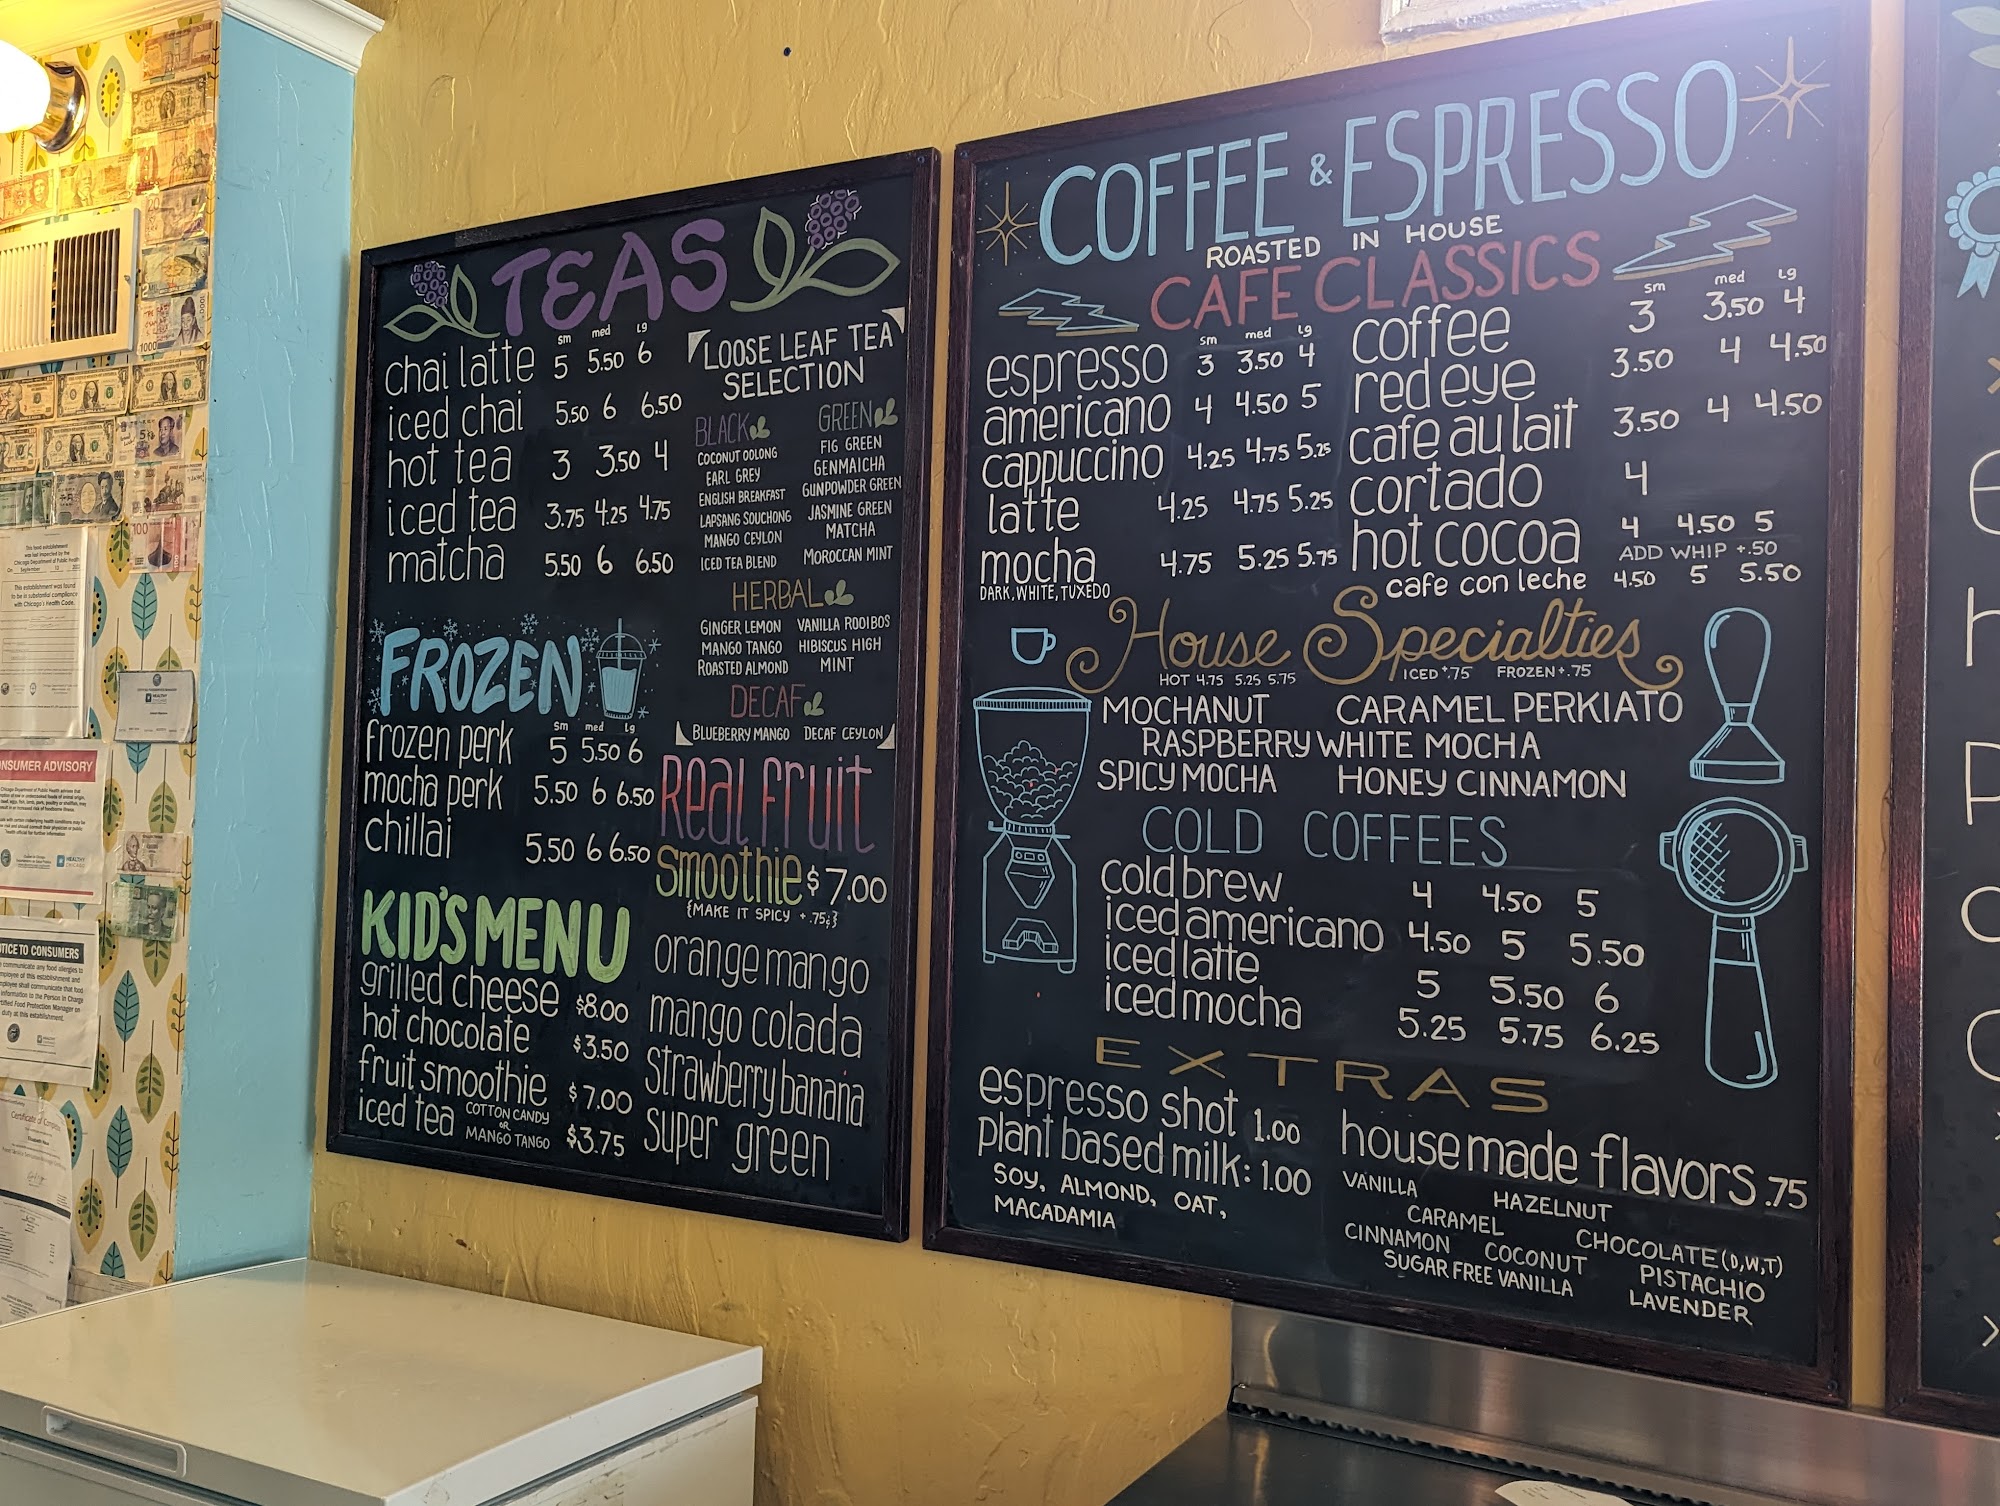 TEAS
sm med lg
chai latte 5 5.50 6
iced chai 5.50 6 6.50
hot tea 3 3.50 4
iced tea 3.75 4.25 4.75
matcha 5.50 6 6.50
LOOSE LEAF TEA
SELECTION
BLACK
COCONUT OOLONG
EARL GREY
ENGLISH BREAKFAST
LAPSANG SOUCHONG
MANGO CEYLON
ICED TEA BLEND
GREEN
FIG GREEN
GENMAICHA
GUNPOWDER GREEN
JASMINE GREEN
MATCHA
MOROCCAN MINT
HERBAL
GINGER LEMON VANILLA ROOIBOS
MANGO TANGO HIBISCUS HIGH
ROASTED ALMOND MINT
DECAF
BLUEBERRY MANGO DECAF CEYLON
FROZEN
sm med lg
frozen perk 5 5.50 6
mocha perk 5.50 6 6.50
chillai 5.50 6 6.50
Real fruit
smoothie $7.00
{MAKE IT SPICY +.75¢}
orange mango
mango colada
strawberry banana
super green
KID'S MENU
grilled cheese $8.00
hot chocolate $3.50
fruit smoothie $7.00
iced tea COTTON CANDY
OR
MANGO TANGO $3.75
COFFEE & ESPRESSO
ROASTED IN HOUSE
CAFE CLASSICS
sm med lg
espresso 3 3.50 4
americano 4 4.50 5
cappuccino 4.25 4.75 5.25
latte 4.25 4.75 5.25
mocha 4.75 5.25 5.75
DARK, WHITE, TUXEDO
sm med lg
coffee 3 3.50 4
red eye 3.50 4 4.50
cafe au lait 3.50 4 4.50
cortado 4
hot cocoa 4 4.50 5
ADD WHIP +.50
cafe con leche 4.50 5 5.50
House Specialties
HOT 4.75 5.25 5.75 ICED +.75 FROZEN +.75
MOCHANUT CARAMEL PERKIATO
RASPBERRY WHITE MOCHA
SPICY MOCHA HONEY CINNAMON
COLD COFFEES
cold brew 4 4.50 5
iced americano 4.50 5 5.50
iced latte 5 5.50 6
iced mocha 5.25 5.75 6.25
EXTRAS
espresso shot 1.00
plant based milk: 1.00
SOY, ALMOND, OAT,
MACADAMIA
house made flavors .75
VANILLA HAZELNUT
CARAMEL CHOCOLATE (D,W,T)
CINNAMON COCONUT PISTACHIO
SUGAR FREE VANILLA LAVENDER
This food establishment
was last inspected by the
Chicago Department of Public Health
On September
This establishment was found
to be in substantial compliance
with Chicago's Health Code.
NSUMER ADVISORY
TICE TO CONSUMERS
communicate any food allergies to
employee of this establishment and
employee shall communicate that food
information to the Person In Charge
ertified Food Protection Manager on
duty at this establishment.